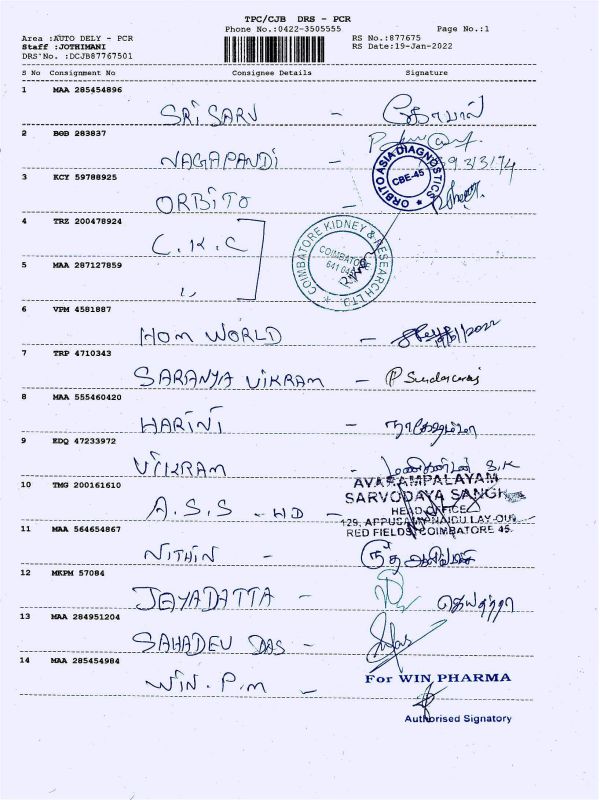 TPC/CJB DRS - PCR
Phone No.:0422-3505555 Page No.:1
Area :AUTO DELY - PCR RS No.:877675
Staff :JOTHIMANI RS Date:19-Jan-2022
DRS No. :DCJB87767501
S No Consignment No Consignee Details Signature
1 MAA 285454896
SRI SARV -
2 BOB 283837
NAGAPANDI -
3 KCY 59788925
ORBITO ASIA DIAGNOSTICS
CBE-45
ORBITO -
4 TRZ 200478924
C.K.C
COIMBATORE KIDNEY & RESEARCH
COIMBATORE
5 MAA 287127859
"
6 VPM 4581887
HOM WORLD -
7 TRP 4710343
SARANYA VIKRAM - P Sundararaj
8 MAA 555460420
HARINI -
9 EDQ 47233972
VIKRAM - மணிகண்டன் S.K
10 TMG 200161610
AVARAMPALAYAM
SARVODAYA SANGH
A.S.S - HD -
HEAD OFFICE
129, APPUSAMY NAIDU LAY-OUT
11 MAA 564654867
RED FIELDS, COIMBATORE 45.
NITHIN -
12 MKPM 57084
JEYADATTA -
13 MAA 284951204
SAHADEV DAS -
14 MAA 285454984
For WIN PHARMA
WIN.P.M -
Authorised Signatory